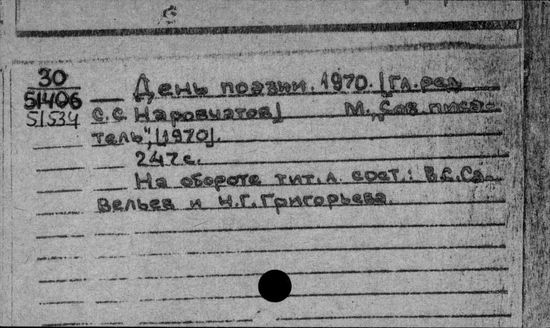 30
51406
51534
День поэзии. 1970. [Гл. ред.
С.С. Наровчатов] М., „Сов. писа-
тель", [1970].
247 с.
На обороте тит. л. сост.: В.С. Са-
вельев и Н.Г. Григорьева.